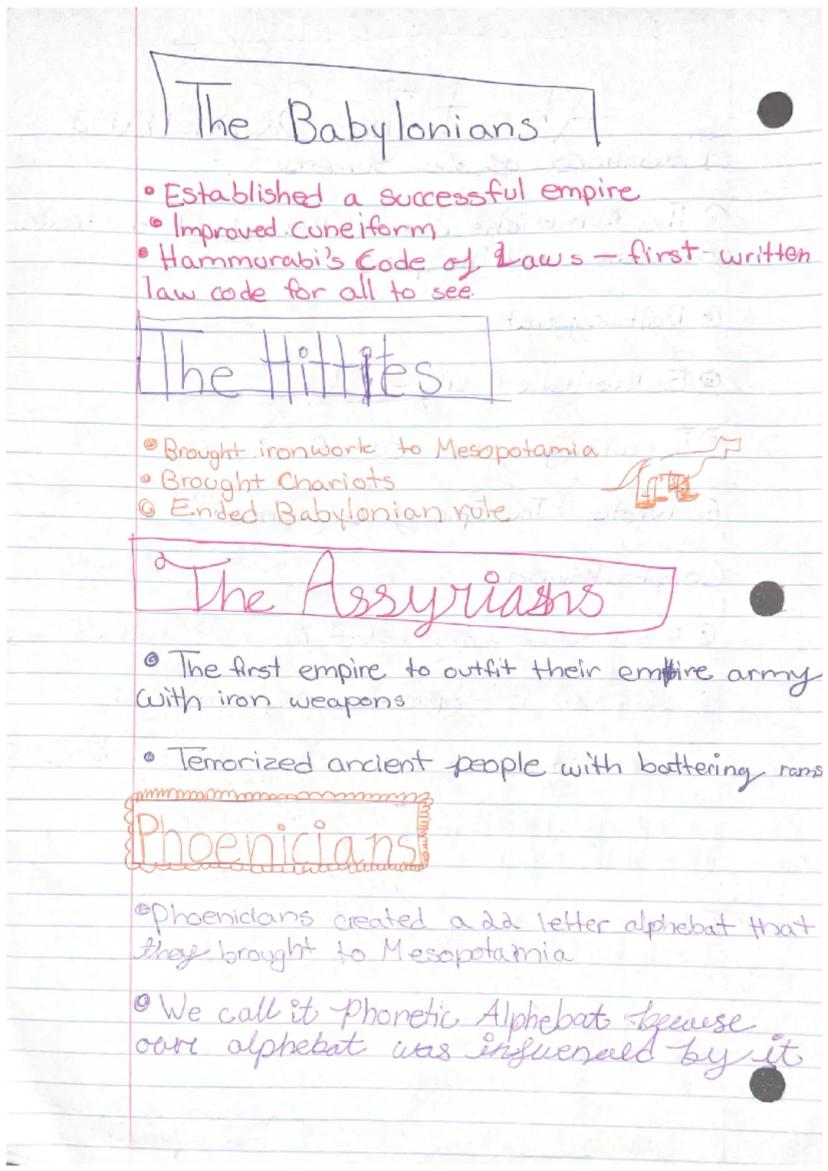 The Babylonians
• Established a successful empire
• Improved cuneiform
• Hammurabi's Code of Laws – first written
law code for all to see.
The Hittites
• Brought ironwork to Mesopotamia
• Brought Chariots
• Ended Babylonian rule
The Assyrians
• The first empire to outfit their empire army
with iron weapons
• Terrorized ancient people with battering rams
Phoenicians
• Phoenicians created a 22 letter alphebat that
they brought to Mesopotamia
• We call it Phonetic Alphebat because
our alphebat was influenced by it